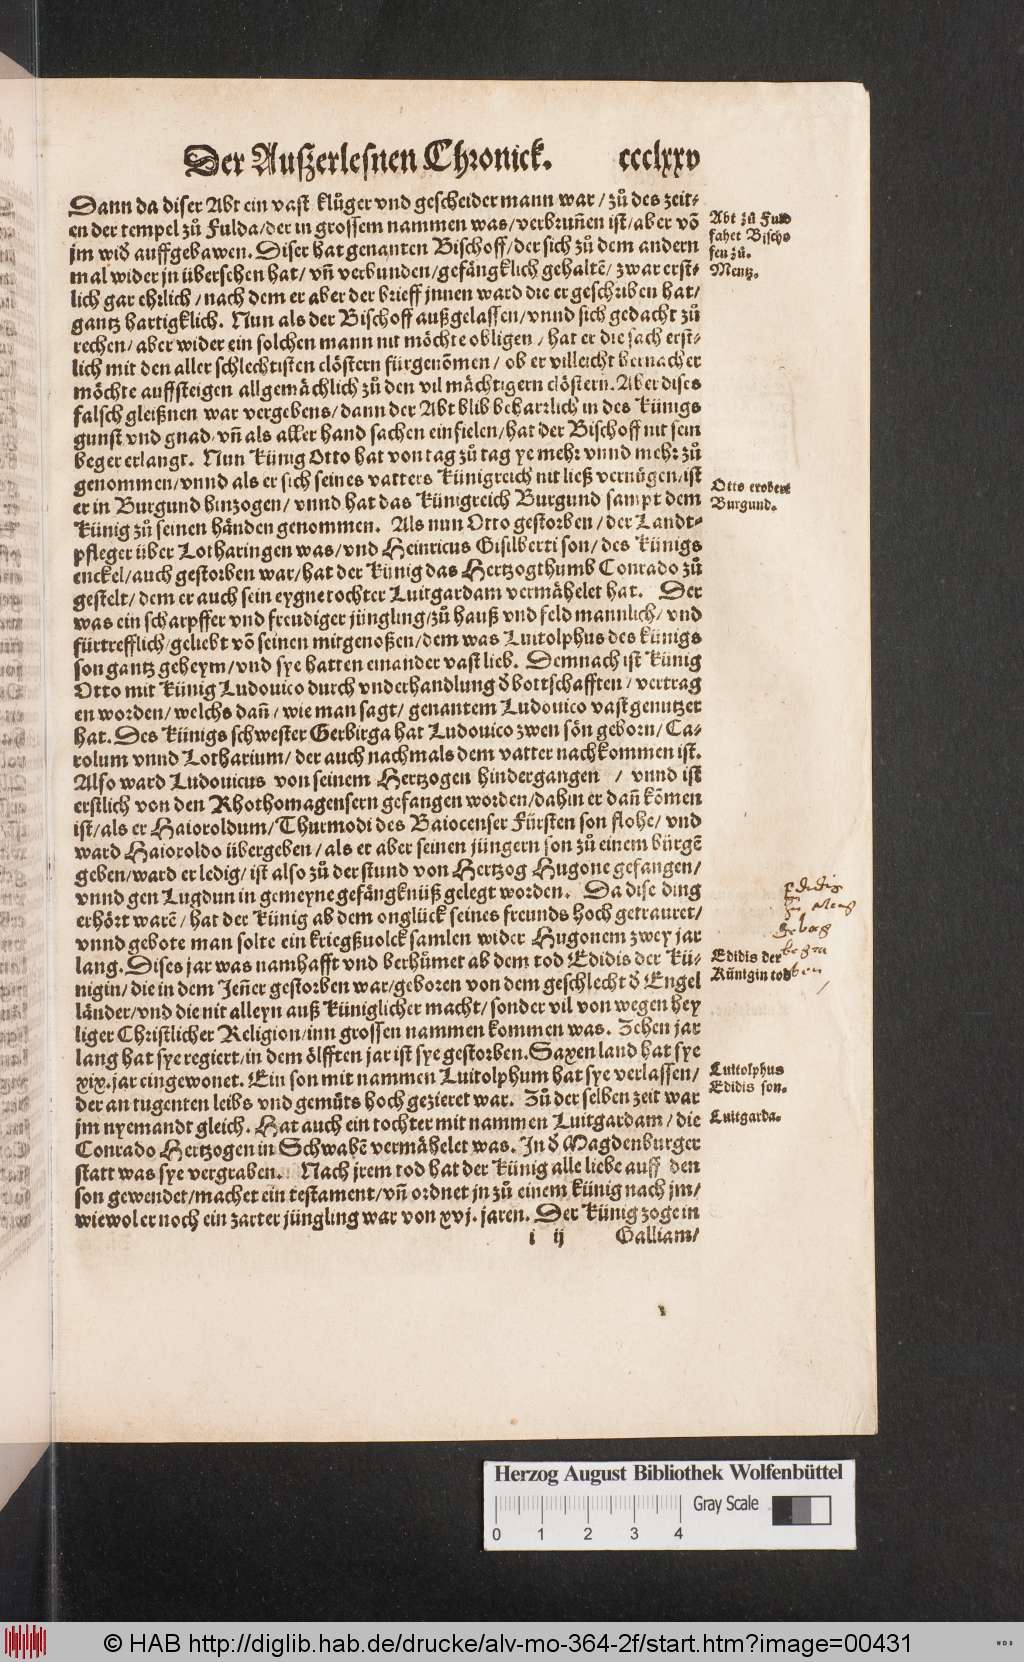 Der Außerlesnen Chronick. ccclxxv
Dann da diser Abt ein vast klůger vnd gescheider mann war / zů des zeit⸗
en der tempel zů Fulda/der in grossem nammen was/verbruñen ist/aber võ
jm wid̕ auffgebawen. Diser hat genanten Bischoff/der sich zů dem andern
mal wider jn übersehen hat/ vñ verbunden/gefängklich gehaltẽ/ zwar erst⸗
lich gar ehrlich / nach dem er aber der brieff jnnen ward die er geschriben hat/
gantz hartigklich. Nun als der Bischoff außgelassen/vnnd sich gedacht zů
rechen/ aber wider ein solchen mann nit möchte obligen / hat er die sach erst⸗
lich mit den aller schlechtisten clöstern fürgenõmen/ ob er villeicht hernacher
möchte auffsteigen allgemächlich zů den vil mächtigern clöstern. Aber dises
falsch gleißnen war vergebens/ dann der Abt blib beharrlich in des Künigs
gunst vnd gnad/ vñ als aller hand sachen einfielen/hat der Bischoff nit sein
beger erlangt. Nun Künig Otto hat von tag zů tag ye mehr vnnd mehr zů
genommen/vnnd als er sich seines vatters Künigreich nit ließ vernügen/ist
er in Burgund hinzogen/ vnnd hat das Künigreich Burgund sampt dem
Künig zů seinen händen genommen. Als nun Otto gestorben / der Landt⸗
pfleger über Lotharingen was/vnd Heinricus Gisilberti son/ des Künigs
enckel/auch gestorben war/hat der Künig das Hertzogthumb Conrado zů
gestelt/ dem er auch sein eygne tochter Luitgardam vermähelet hat. Der
was ein scharpffer vnd freudiger jüngling/zů hauß vnd feld mannlich/ vnd
fürtrefflich/geliebt võ seinen mitgenoßen/dem was Luitolphus des künigs
son gantz geheym/vnd sye hatten einander vast lieb. Demnach ist Künig
Otto mit Künig Ludouico durch vnderhandlung d̕ bottschafften / vertrag
en worden/welchs dañ / wie man sagt/ genantem Ludouico vast genutzet
hat. Des Künigs schwester Gerbirga hat Ludouico zwen sön geborn/ Ca⸗
rolum vnnd Lotharium/ der auch nachmals dem vatter nachkommen ist.
Also ward Ludouicus von seinem Hertzogen hindergangen / vnnd ist
erstlich von den Rhothomagensern gefangen worden/dahin er dañ kõmen
ist/als er Haioroldum/Thurmodi des Baiocenser Fürsten son flohe/ vnd
ward Haioroldo übergeben/als er aber seinen jüngern son zů einem bürgẽ
geben/ward er ledig/ ist also zů der stund von Hertzog Hugone gefangen/
vnnd gen Lugdun in gemeyne gefängknüß gelegt worden. Da dise ding
erhört warẽ/ hat der Künig ab dem onglück seines freunds hoch getrauret/
vnnd gebote man solte ein kriegßuolck samlen wider Hugonem zwey jar
lang. Dises jar was namhafft vnd berhůmet ab dem tod Edidis der Kü⸗
nigin/ die in dem Jeñer gestorben war/geboren von dem geschlecht d̕ Engel
länder/vnd die nit alleyn auß Küniglicher macht/ sonder vil von wegen hey
liger Christlicher Religion/inn grossen nammen kommen was. Zehen jar
lang hat sye regiert/in dem ölfften jar ist sye gestorben. Saxen land hat sye
xix. jar eingewonet. Ein son mit nammen Luitolphum hat sye verlassen/
der an tugenten leibs vnd gemůts hoch gezieret war. Zů der selben zeit war
jm nyemandt gleich. Hat auch ein tochter mit nammen Luitgardam / die
Conrado Hertzogen in Schwabẽ vermähelet was. In d̕ Magdenburger
statt was sye vergraben. Nach jrem tod hat der Künig alle liebe auff den
son gewendet/machet ein testament/vñ ordnet jn zů einem künig nach jm/
wiewol er noch ein zarter jüngling war von xvj. jaren. Der Künig zoge in
i ij Galliam/
Abt zů Fuld
fahet Bischo
fen zů.
Mentz.
Otto erobert
Burgund.
Edidis der
Künigin tod
Luitolphus
Edidis son.
Luitgarda.
Herzog August Bibliothek Wolfenbüttel
Gray Scale
0 1 2 3 4
© HAB http://diglib.hab.de/drucke/alv-mo-364-2f/start.htm?image=00431